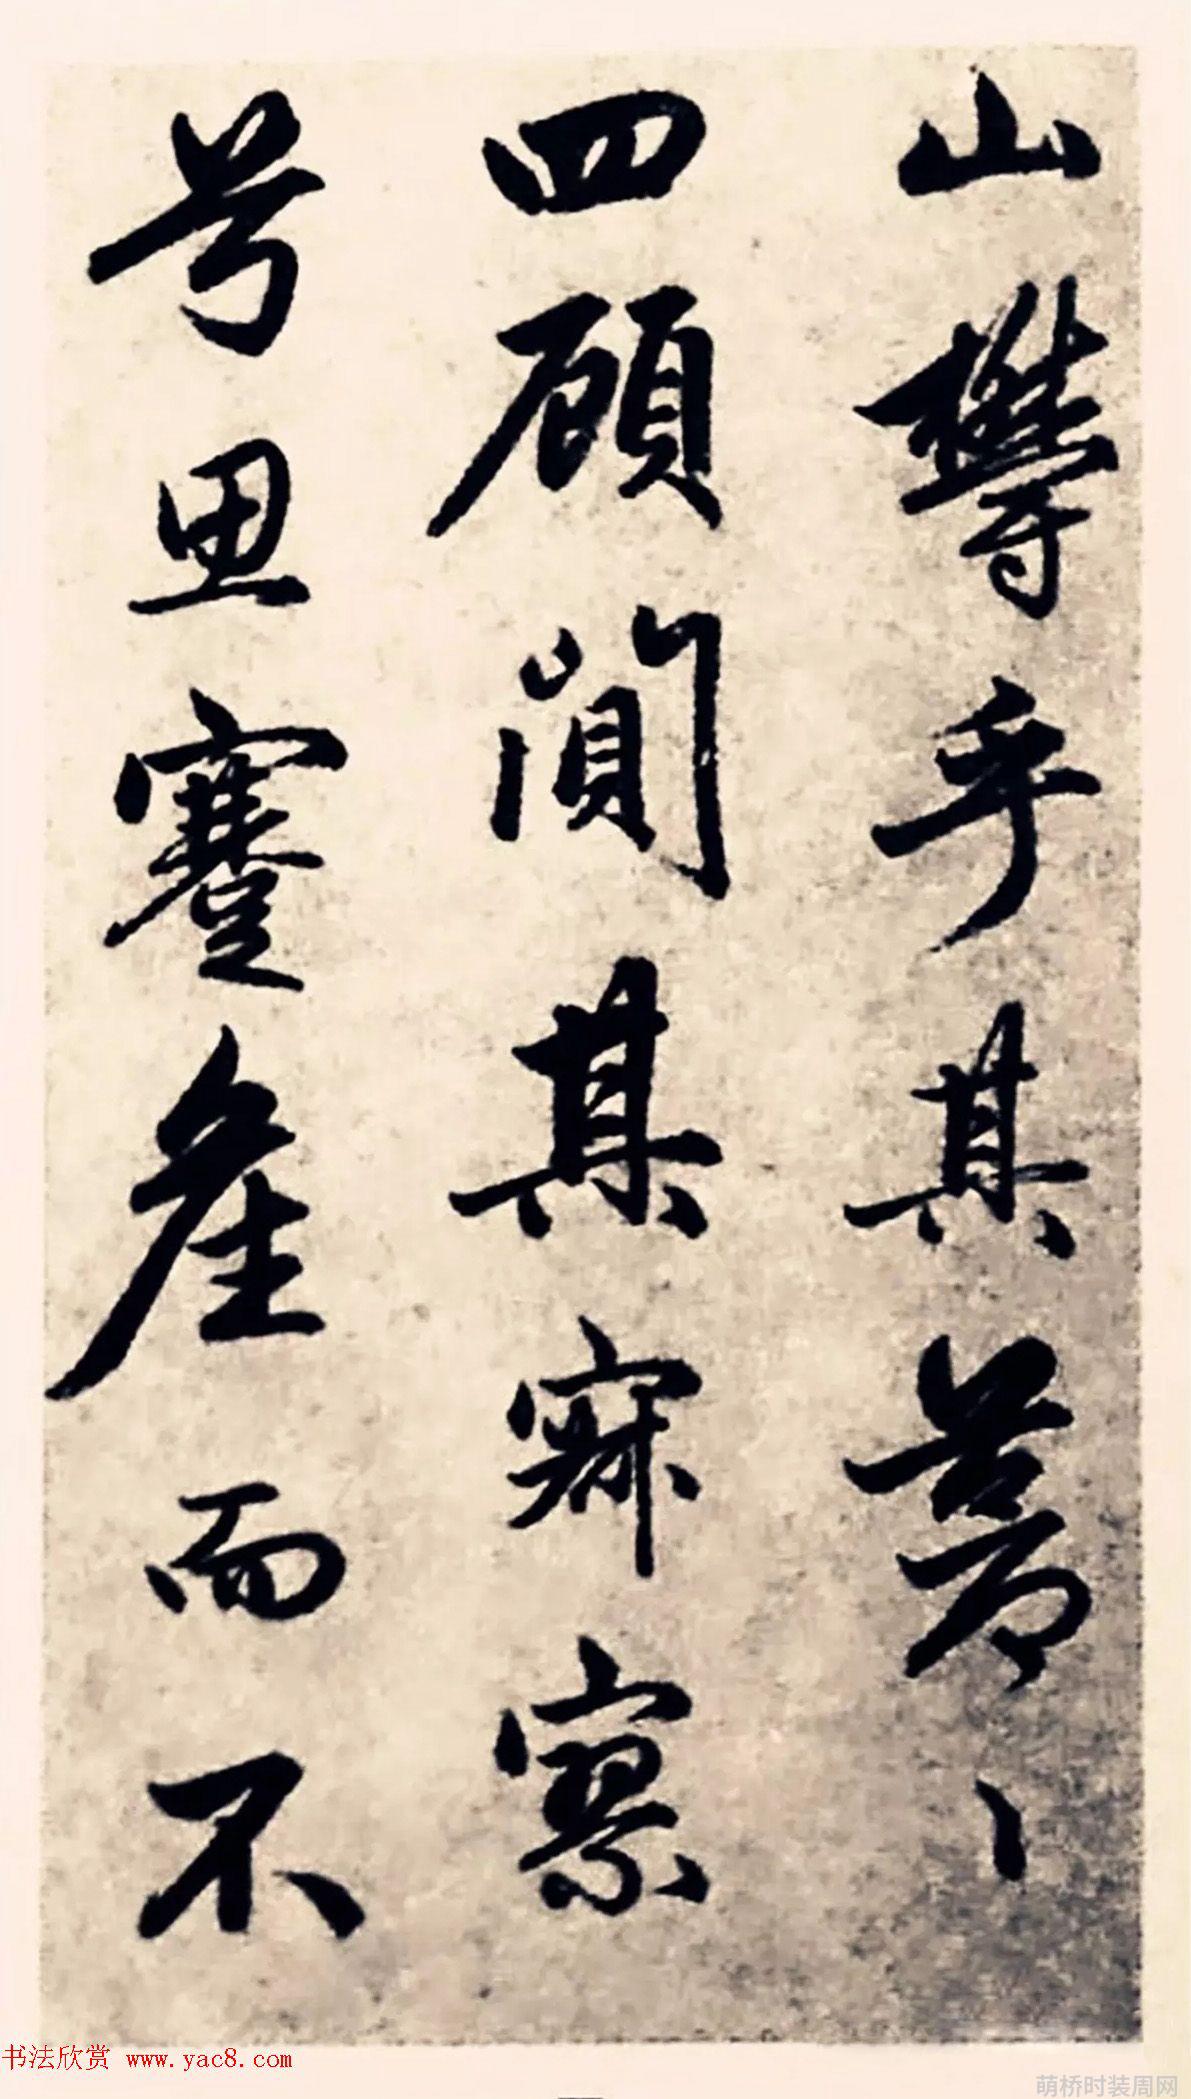 山欝乎其蒼〻
四顧闃其寂寥
兮思蹇產而不
书法欣赏 www.yac8.com
萌桥时装周网